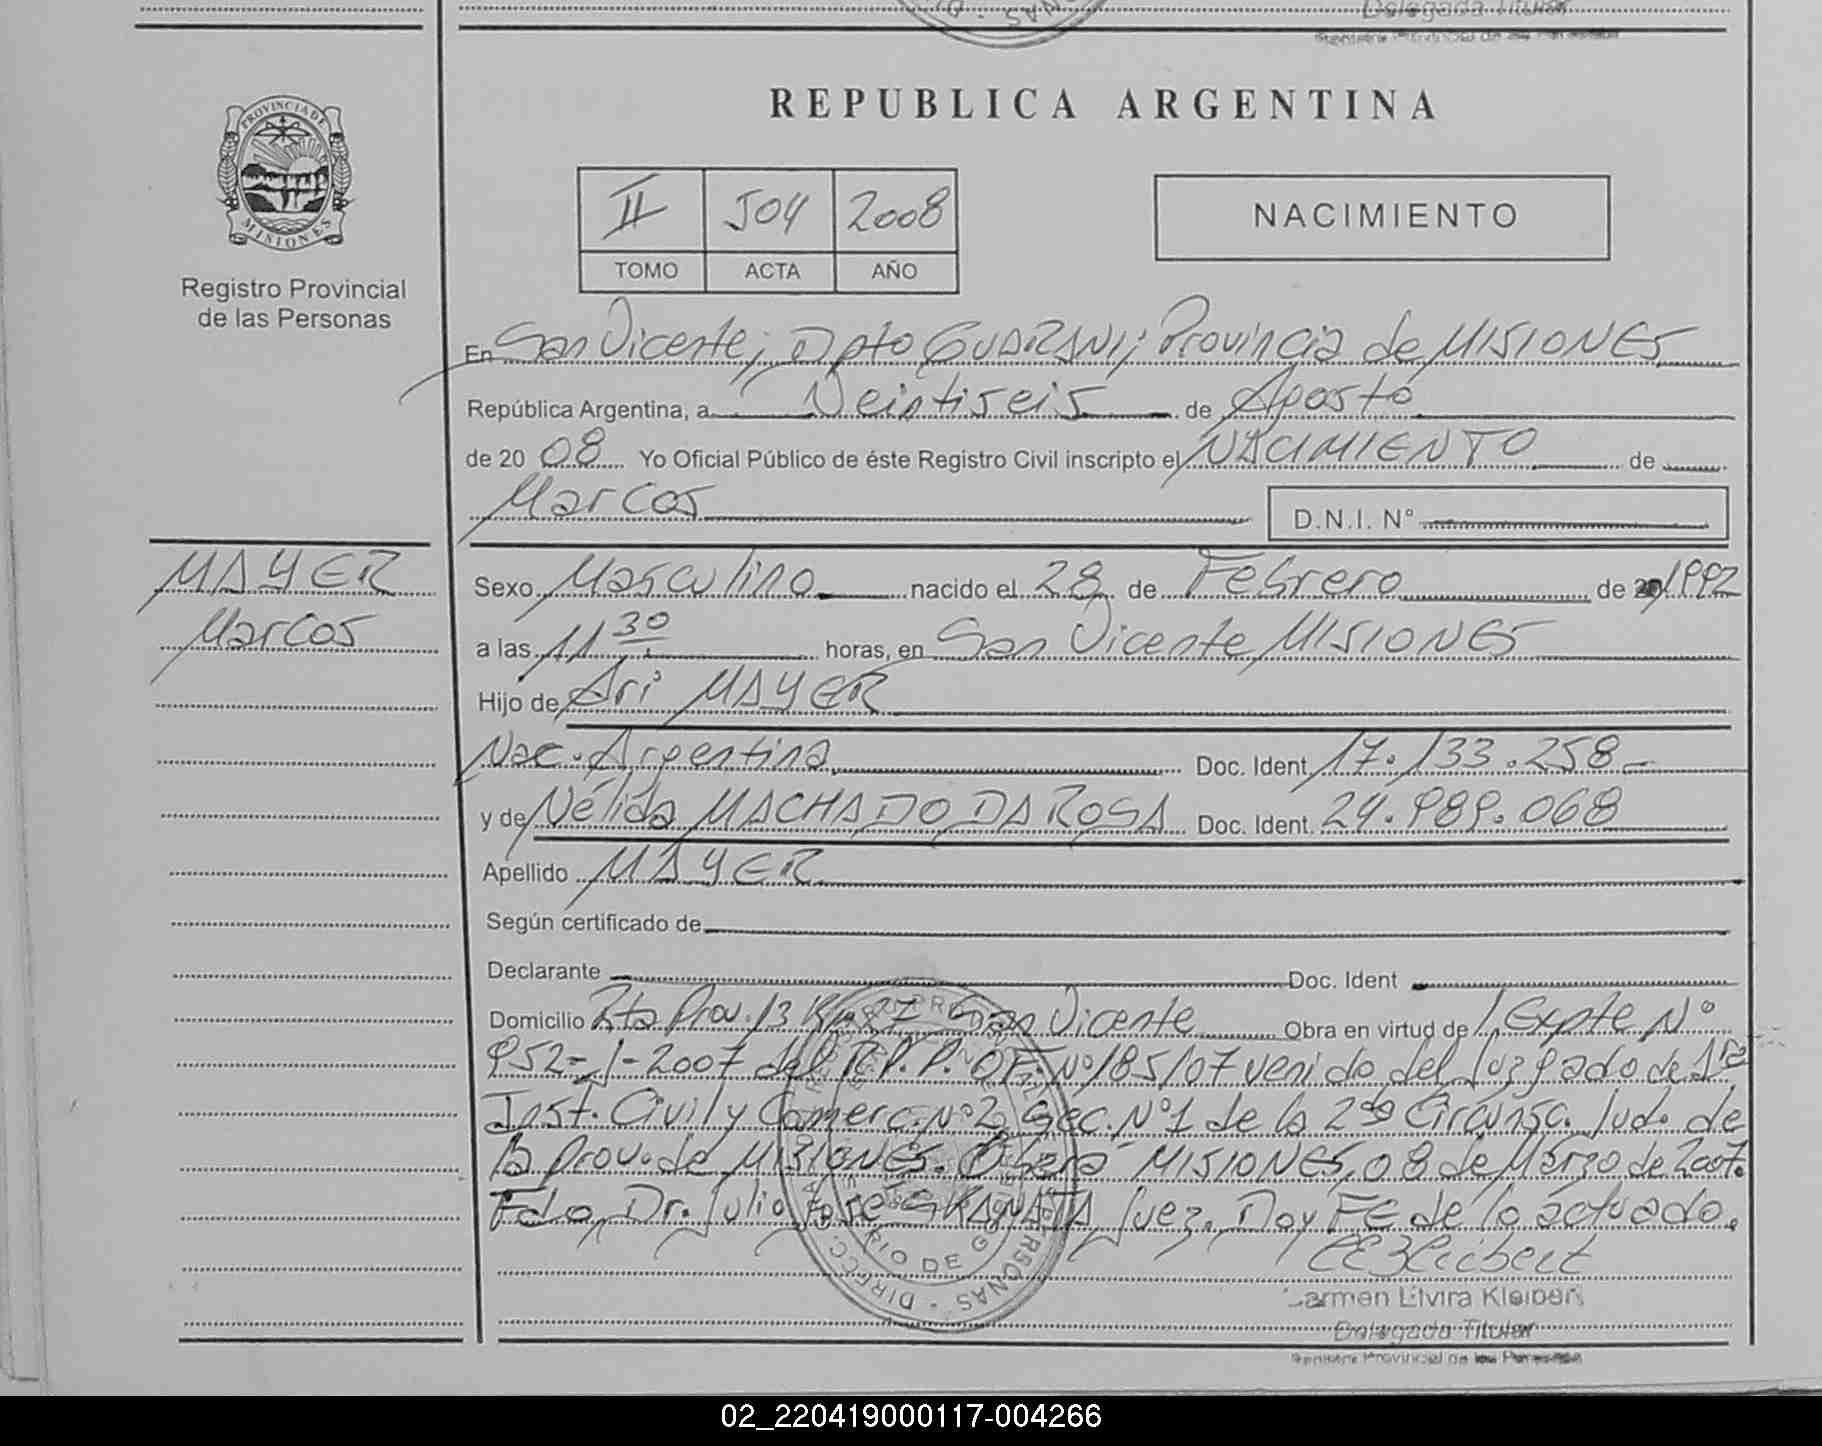 Delegada Titular
PROVINCIA DE
MISIONES
Registro Provincial
de las Personas
REPUBLICA ARGENTINA
II 504 2008
TOMO ACTA AÑO
NACIMIENTO
En San Vicente; Dpto GUARANI; Provincia de MISIONES
República Argentina, a Veintiseis de Agosto
de 20 08 Yo Oficial Público de éste Registro Civil inscripto el NACIMIENTO de
Marcos D.N.I. N°
MAYER
Marcos
Sexo Masculino nacido el 28 de Febrero de 1992
a las 11 30 horas, en San Vicente MISIONES
Hijo de Ari MAYER
Nac. Argentina Doc. Ident 17.133.258-
y de Nélida MACHADO DA ROSA Doc. Ident. 24.989.068
Apellido MAYER
Según certificado de
Declarante Doc. Ident
Domicilio Rta Prov. 13 Km 27 San Vicente Obra en virtud de Expte N°
952-J-2007 del R.P.P. OF. N° 185/07 venido del Juzgado de 1ra
Inst. Civil y Comerc. N°2 Sec. N°1 de la 2da Circunsc. Jud. de
la prov. de MISIONES. Oberá MISIONES, 08 de Marzo de 2007.
Fdo, Dr. Julio José Juez. Doy FE de lo actuado.
Carmen Elvira Kleibert
Delegada Titular
Registro Provincial de las Personas
02_220419000117-004266